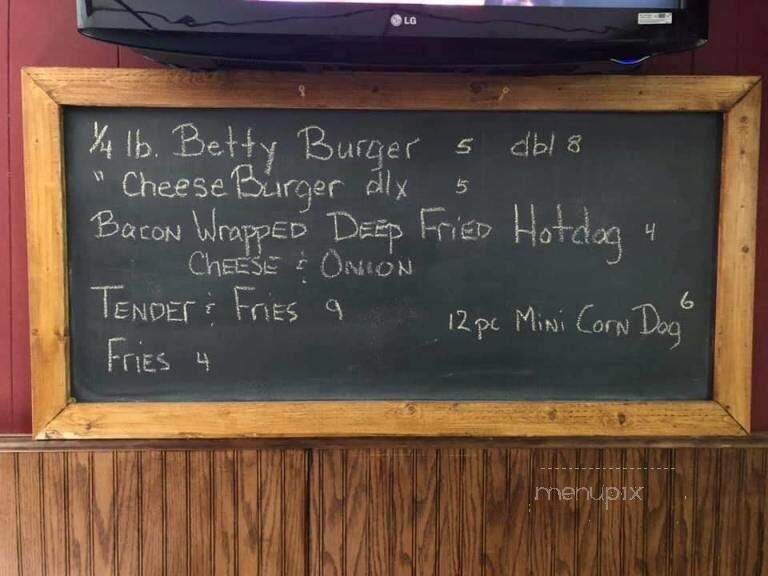 LG
1/4 lb. Betty Burger 5 dbl 8
" Cheese Burger dlx 5
Bacon Wrapped Deep Fried Hotdog 4
Cheese & Onion
Tender & Fries 9
12 pc Mini Corn Dog 6
Fries 4
menupix